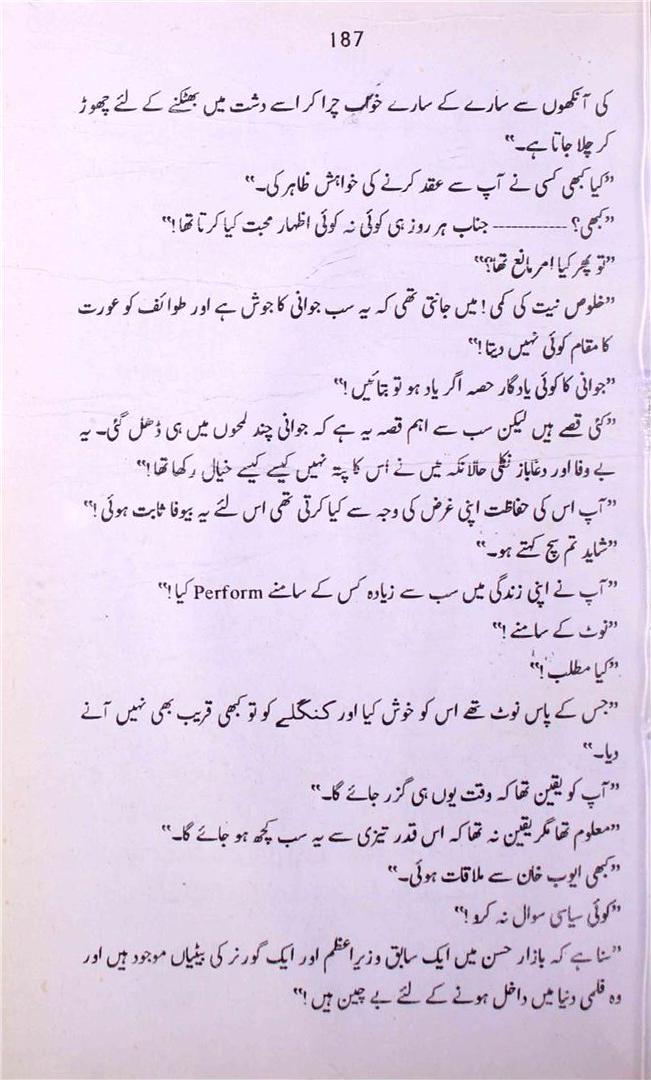 187
کی آنکھوں سے سارے کے سارے خواب چرا کر اسے دشت میں بھٹکنے کے لئے چھوڑ
کر چلا جاتا ہے۔“
”کیا کبھی کسی نے آپ سے عقد کرنے کی خواہش ظاہر کی۔“
”کبھی؟ ------------ جناب ہر روز ہی کوئی نہ کوئی اظہار محبت کیا کرتا تھا!“
”تو پھر کیا امر مانع تھا؟“
”خلوص نیت کی کمی! میں جانتی تھی کہ یہ سب جوانی کا جوش ہے اور طوائف کو عورت
کا مقام کوئی نہیں دیتا!“
”جوانی کا کوئی یادگار حصہ اگر یاد ہو تو بتائیں!“
”کئی قصے ہیں لیکن سب سے اہم قصہ یہ ہے کہ جوانی چند لمحوں میں ہی ڈھل گئی۔ یہ
بے وفا اور دغاباز نکلی حالانکہ میں نے اس کا پتہ نہیں کیسے کیسے خیال رکھا تھا!“
”آپ اس کی حفاظت اپنی غرض کی وجہ سے کیا کرتی تھی اس لئے یہ بیوفا ثابت ہوئی!“
”شاید تم سچ کہتے ہو۔“
”آپ نے اپنی زندگی میں سب سے زیادہ کس کے سامنے Perform کیا!“
”نوٹ کے سامنے!“
”کیا مطلب!“
”جس کے پاس نوٹ تھے اس کو خوش کیا اور کنگلے کو تو کبھی قریب بھی نہیں آنے
دیا۔“
”آپ کو یقین تھا کہ وقت یوں ہی گزر جائے گا۔“
”معلوم تھا مگر یقین نہ تھا کہ اس قدر تیزی سے یہ سب کچھ ہو جائے گا۔“
”کبھی ایوب خان سے ملاقات ہوئی۔“
”کوئی سیاسی سوال نہ کرو!“
”سنا ہے کہ بازار حسن میں ایک سابق وزیراعظم اور ایک گورنر کی بیٹیاں موجود ہیں اور
وہ فلمی دنیا میں داخل ہونے کے لئے بے چین ہیں!“